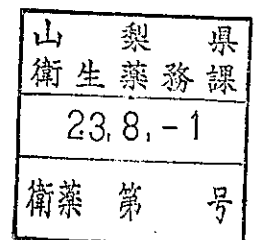 山梨県
衛生薬務課
23.8.-1
衛薬 第 号